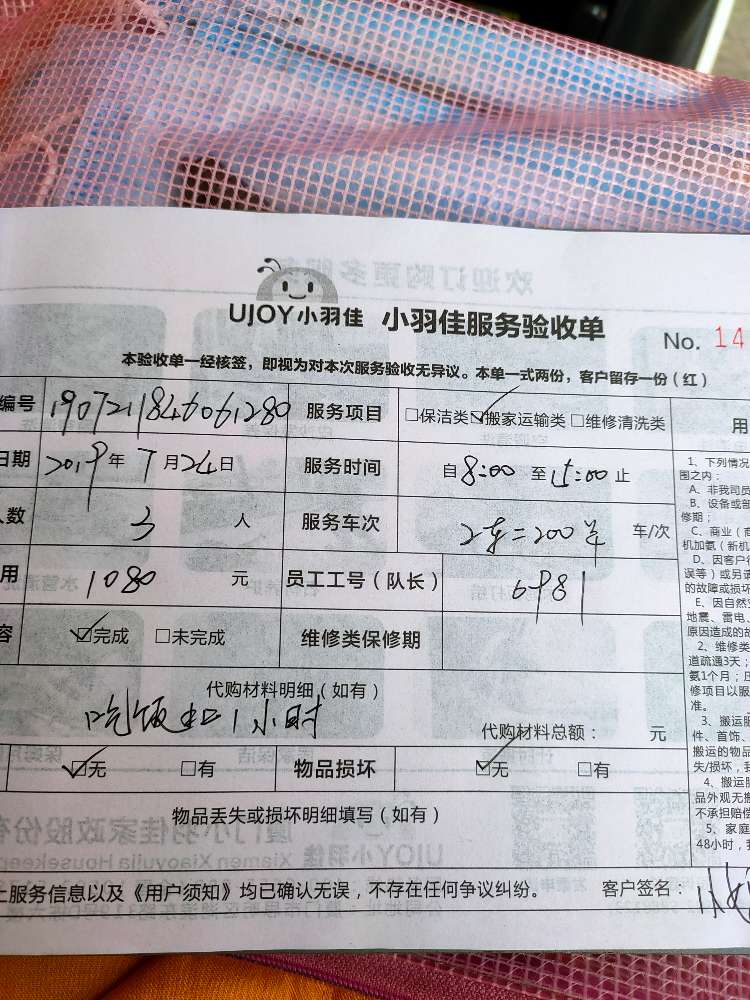 UJOY小羽佳 小羽佳服务验收单
No. 14
本验收单一经核签，即视为对本次服务验收无异议。本单一式两份，客户留存一份（红）
编号 1907211846061280 服务项目 □保洁类 ☑搬家运输类 □维修清洗类 用
日期 2019年7月24日 服务时间 自8:00至15:00止
人数 3 人 服务车次 2车=200 车/次
用 1080 元 员工工号（队长） 6981
容 ☑完成 □未完成 维修类保修期
代购材料明细（如有）
吃饭扣1小时
代购材料总额： 元
☑无 □有 物品损坏 ☑无 □有
物品丢失或损坏明细填写（如有）
上服务信息以及《用户须知》均已确认无误，不存在任何争议纠纷。 客户签名：
1、下列情况
围之内：
A、非我司员
B、设备或部
修期；
C、商业（商
机加氨（新机
D、因客户
误等）或另请
的故障或损坏
E、因自然灾
地震、雷电、
原因造成的故
2、维修类
道疏通3天；
氨1个月；
修项目以服
准。
3、搬运服
件、首饰、
搬运的物品
失/损坏，
4、搬运服
品外观无搬
不承担赔偿
5、家庭
48小时，
欢迎订购更多服
厦门小羽佳家政股份有
Xiamen Xiaoyujia Housekeep
UJOY小羽佳